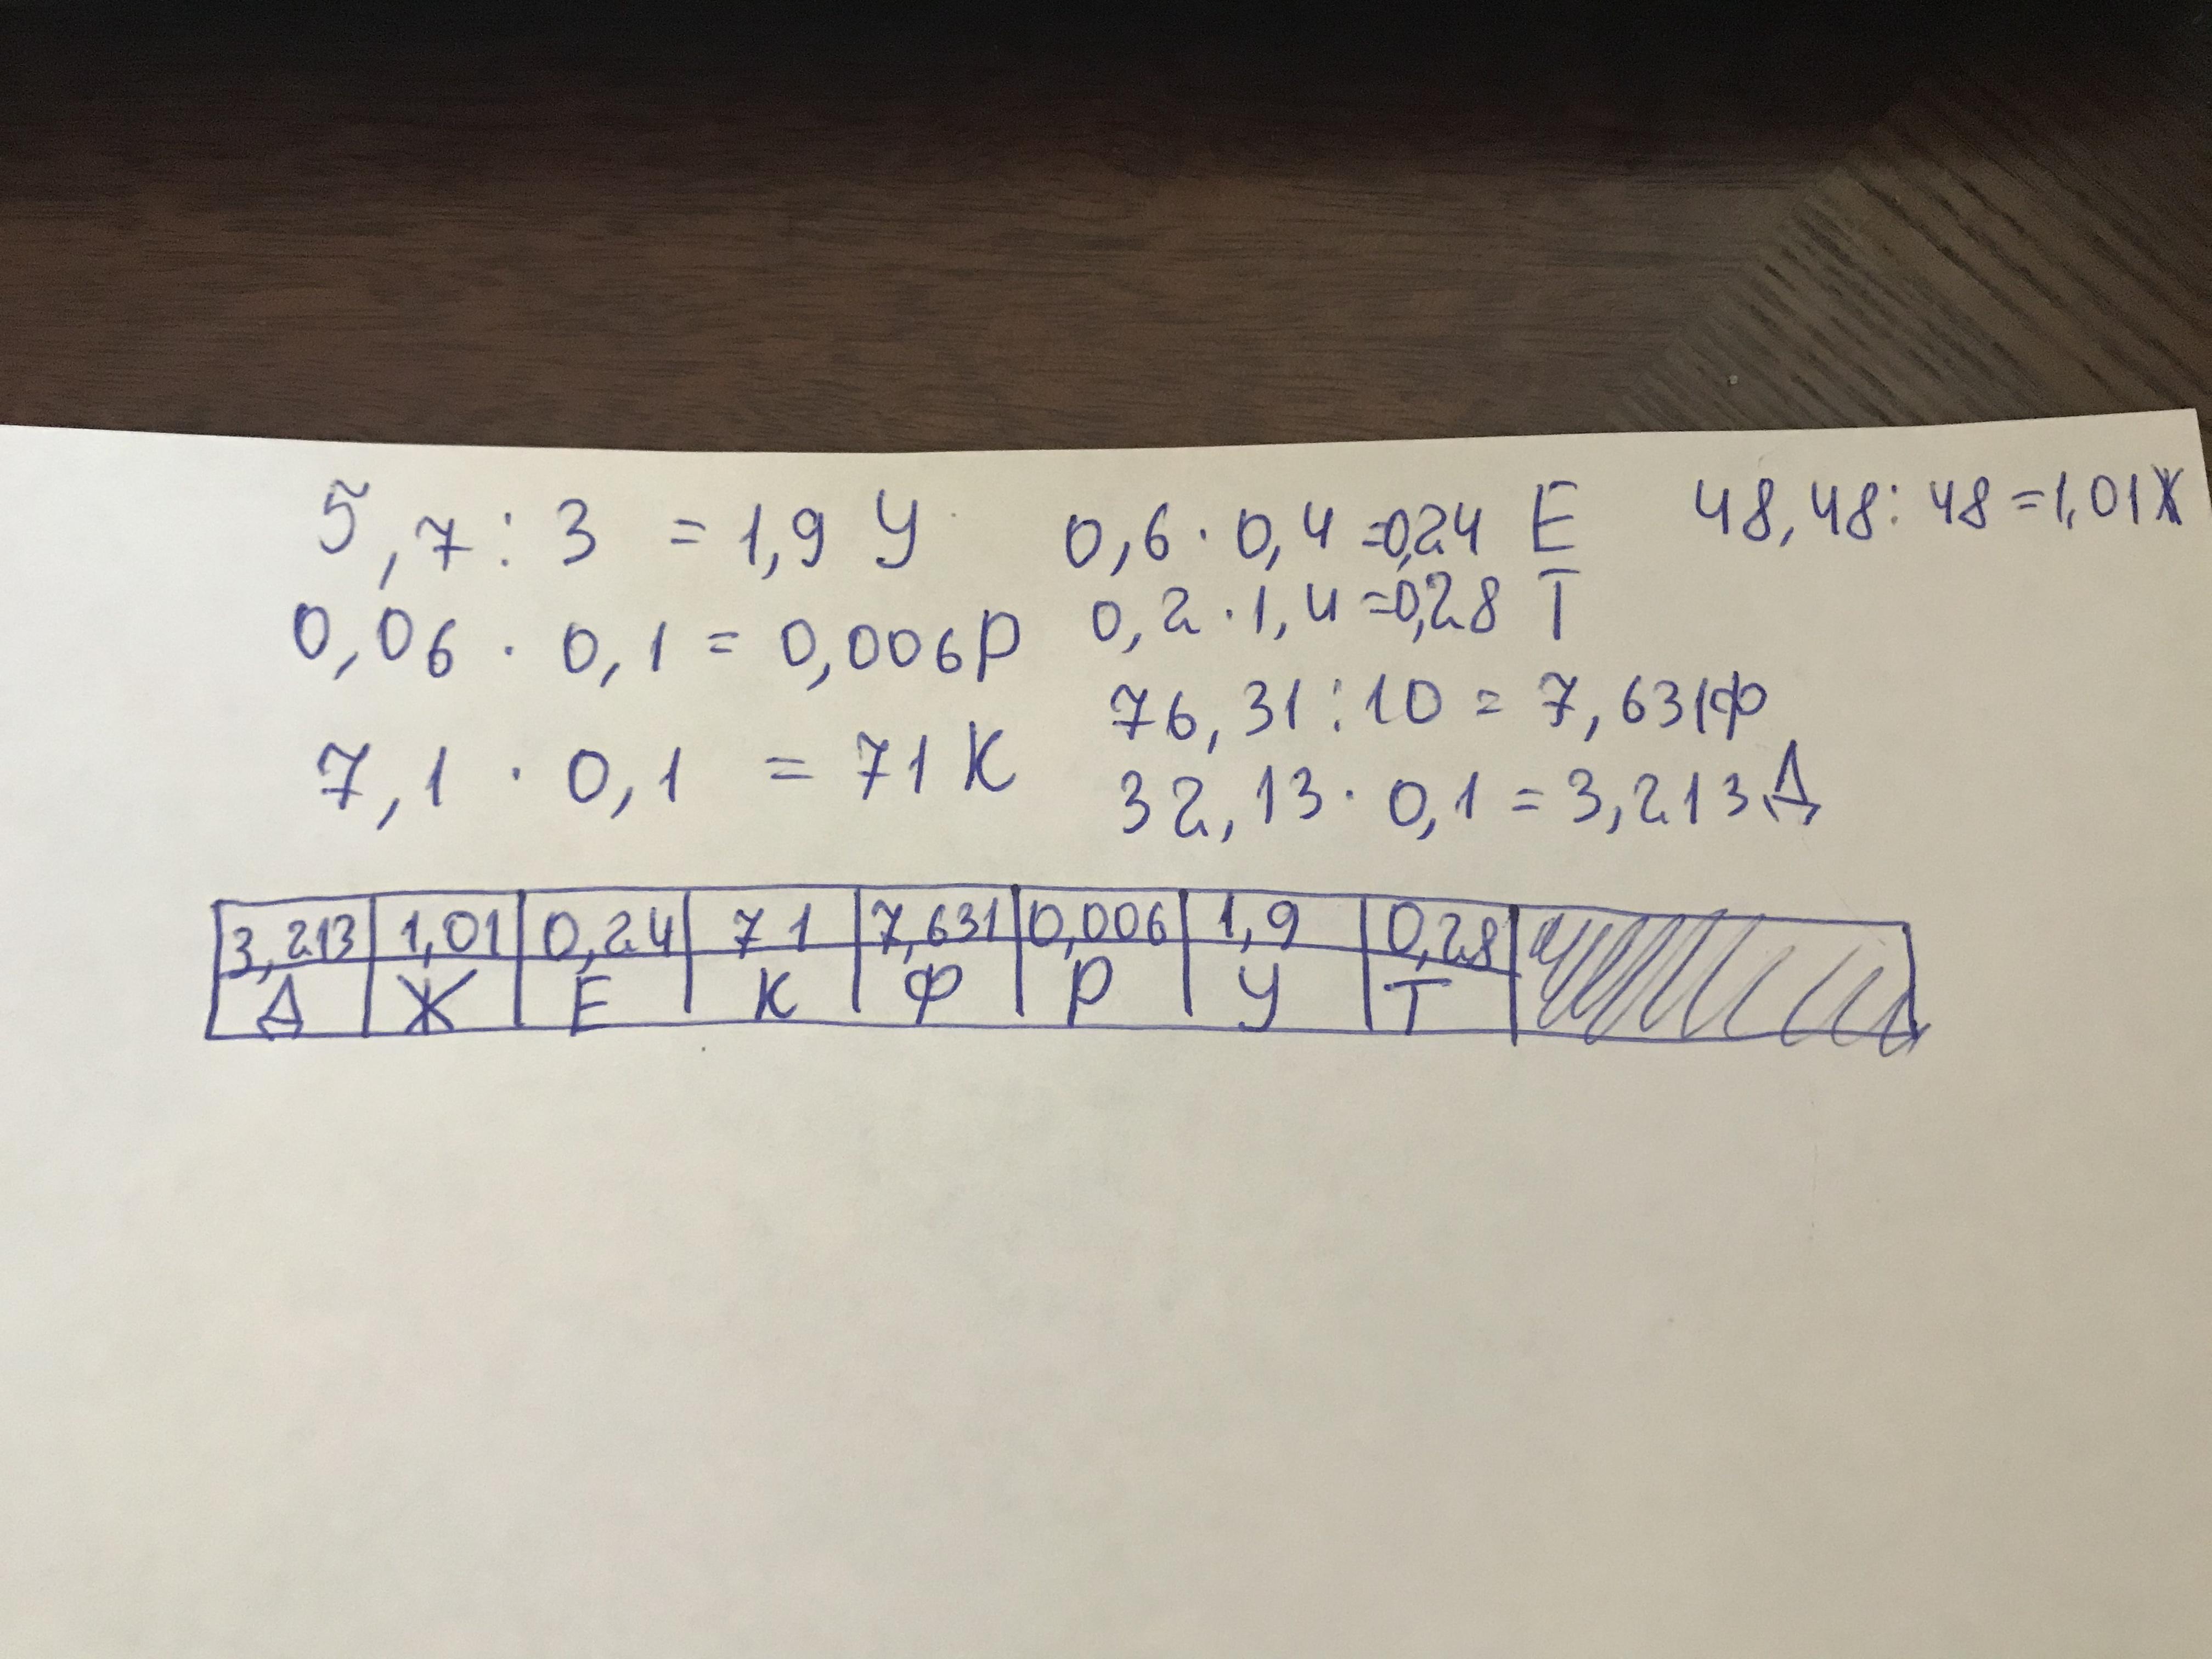 5,7 : 3 = 1,9 У 0,6 · 0,4 = 0,24 Е 48,48 : 48 = 1,01 Ж
0,06 · 0,1 = 0,006 Р 0,2 · 1,4 = 0,28 Т
76,31 : 10 = 7,631 Ф
7,1 · 0,1 = 71 К 32,13 · 0,1 = 3,213 Д
3,213 1,01 0,24 71 7,631 0,006 1,9 0,28
Д Ж Е К Ф Р У Т